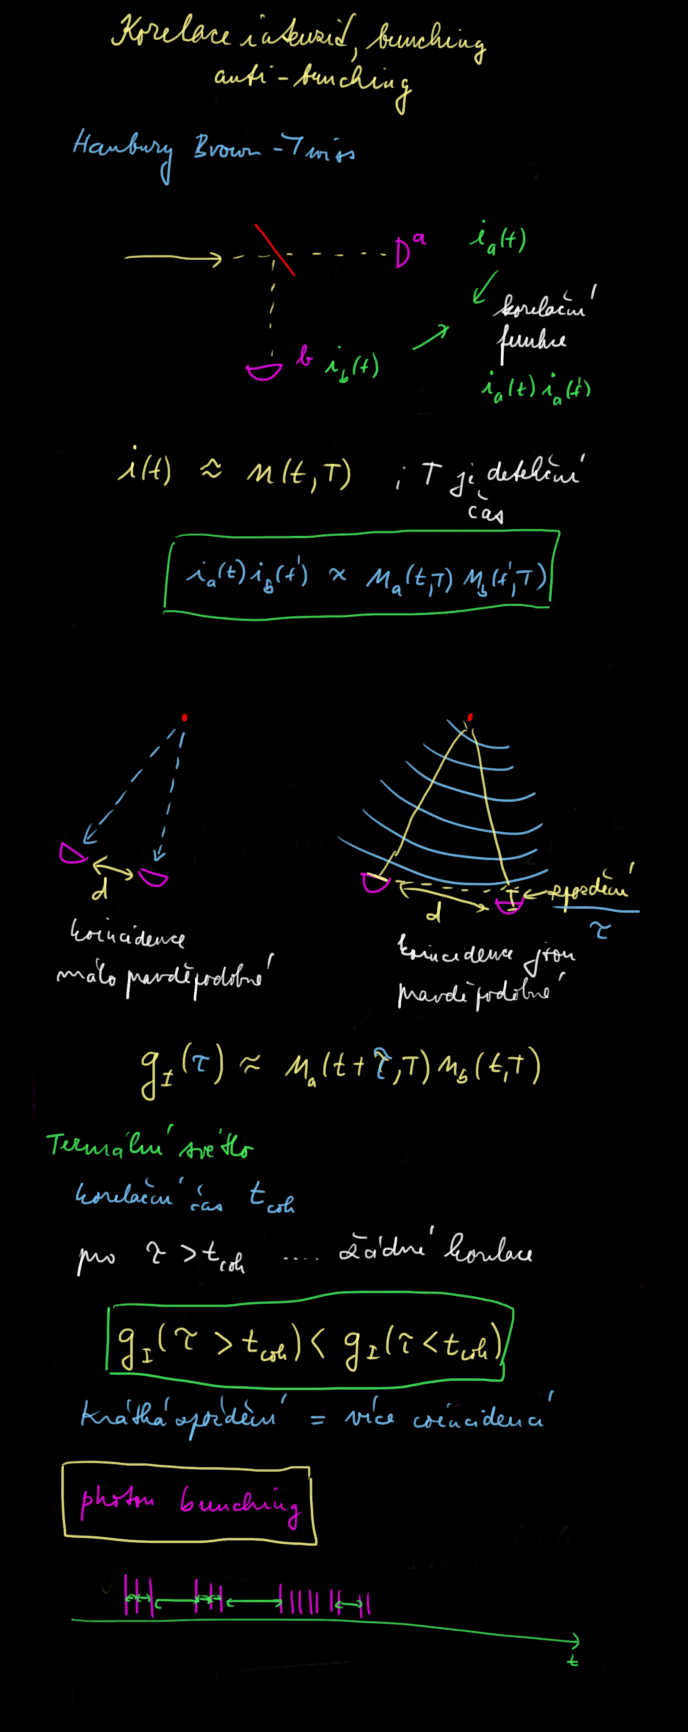 Korelace intenzit, bunching
anti-bunching
Hanbury Brown-Twiss
a
i_a(t)
korelační
funkce
b i_b(t)
i_a(t) i_a(t')
i(t) ≈ n(t,T) ; T je detekční
čas
i_a(t) i_b(t') ∝ n_a(t,T) n_b(t',T)
d
koincidence
málo pravděpodobné
d
zpoždění
τ
koincidence jsou
pravděpodobné
g_I(τ) ≈ n_a(t+τ,T) n_b(t,T)
Termální světlo
korelační čas t_coh
pro τ > t_coh .... žádné korelace
g_I(τ > t_coh) < g_I(τ < t_coh)
krátká zpoždění = více coincidencí
photon bunching
t